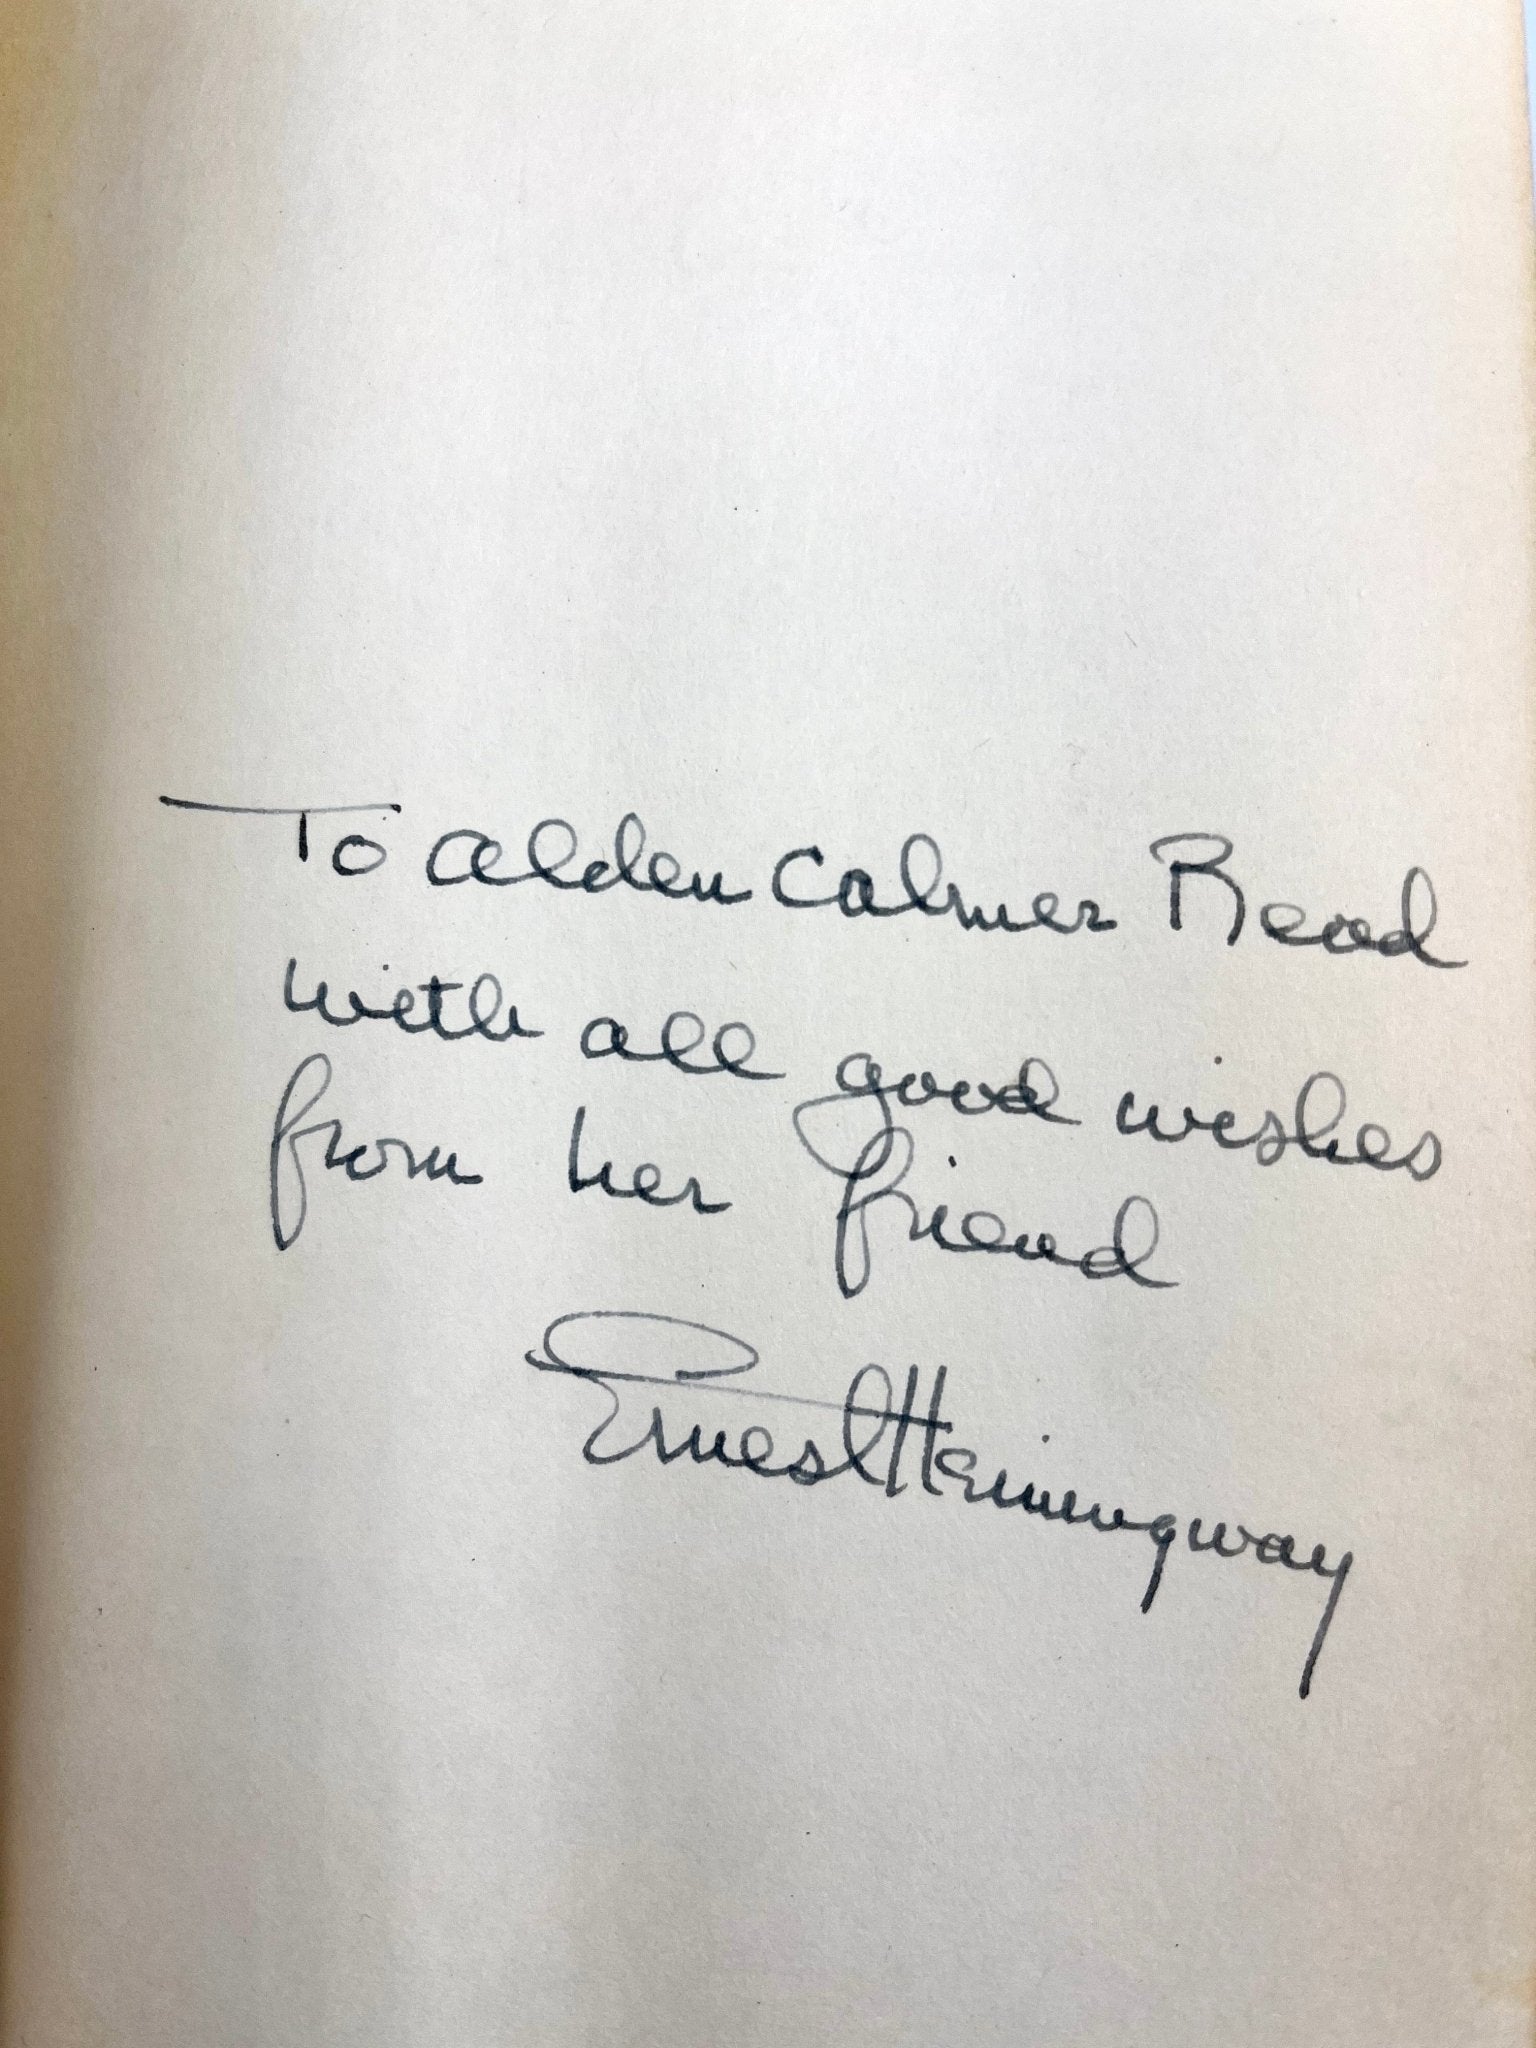 To Alden Calmer Read
with all good wishes
from her friend
Ernest Hemingway